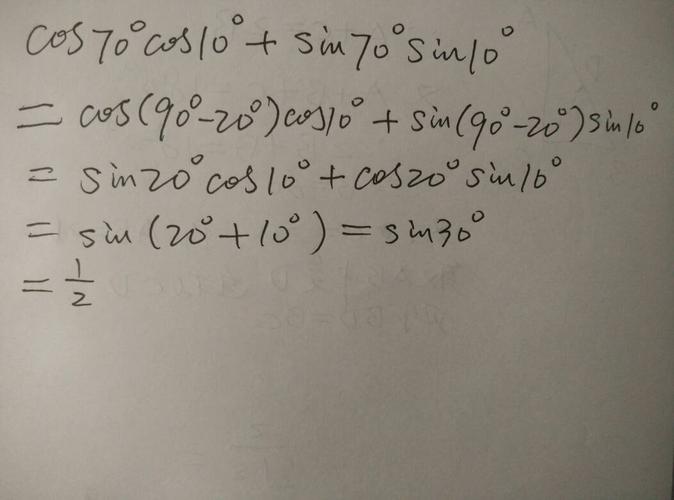 cos70°cos10°+sin70°sin10°
=cos(90°-20°)cos10°+sin(90°-20°)sin10°
=sin20°cos10°+cos20°sin10°
=sin(20°+10°)=sin30°
=1/2